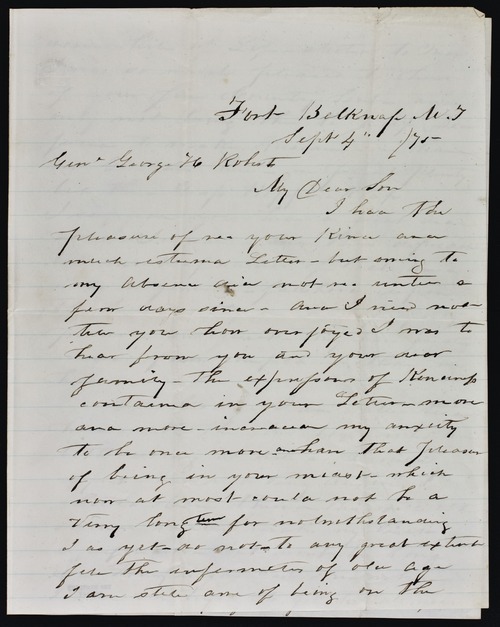 Fort Belknap M. T
Sept 4" /75
Genl George H Robert
My Dear Son
I had the
pleasure of rec your Kind and
much esteemed Letter - but owing to
my absence did not rec until a
few days since - and I need not
tell you how overjoyed I was to
hear from you and your dear
family - the expressions of Kindness
contained in your Letter - more
and more - increased my anxiety
to be once more that pleasure
of being in your midst - which
now at most could not be a
very long time for notwithstanding
I as yet - do not - to any great extent
feel the infirmities of old age
I am still one of being on the